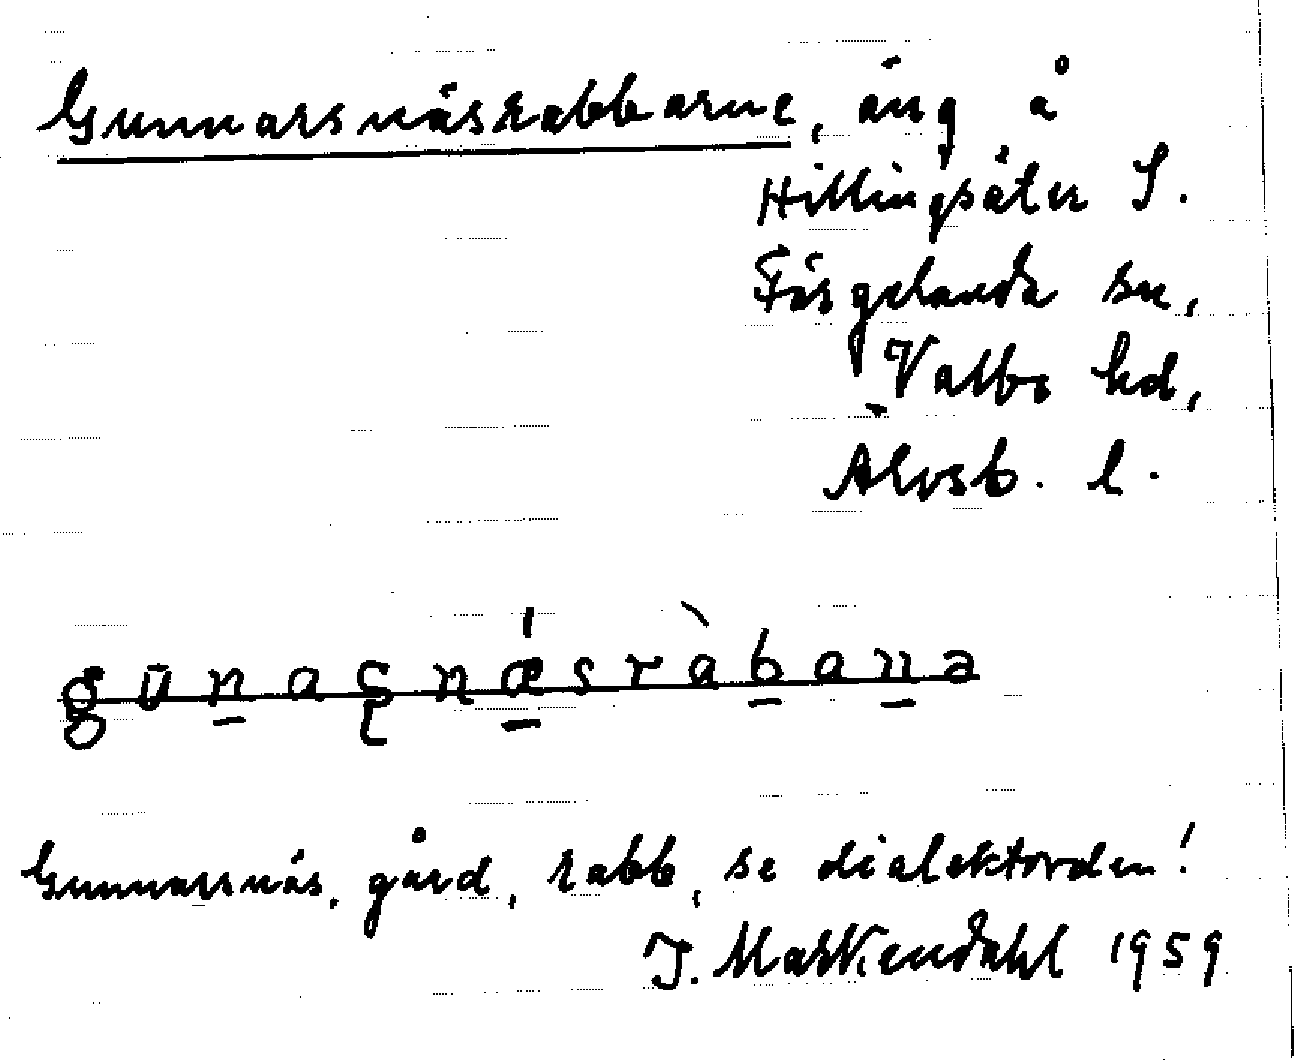 Gunnarsnäsrabbarne, äng å
Hillingsäter S.
Färgelanda sn,
Valbo hd,
Älvsb. l.
gūnaʂnǽsràbanə
Gunnarsnäs, gård, rabb, se dialektorden!
J. Markendahl 1959